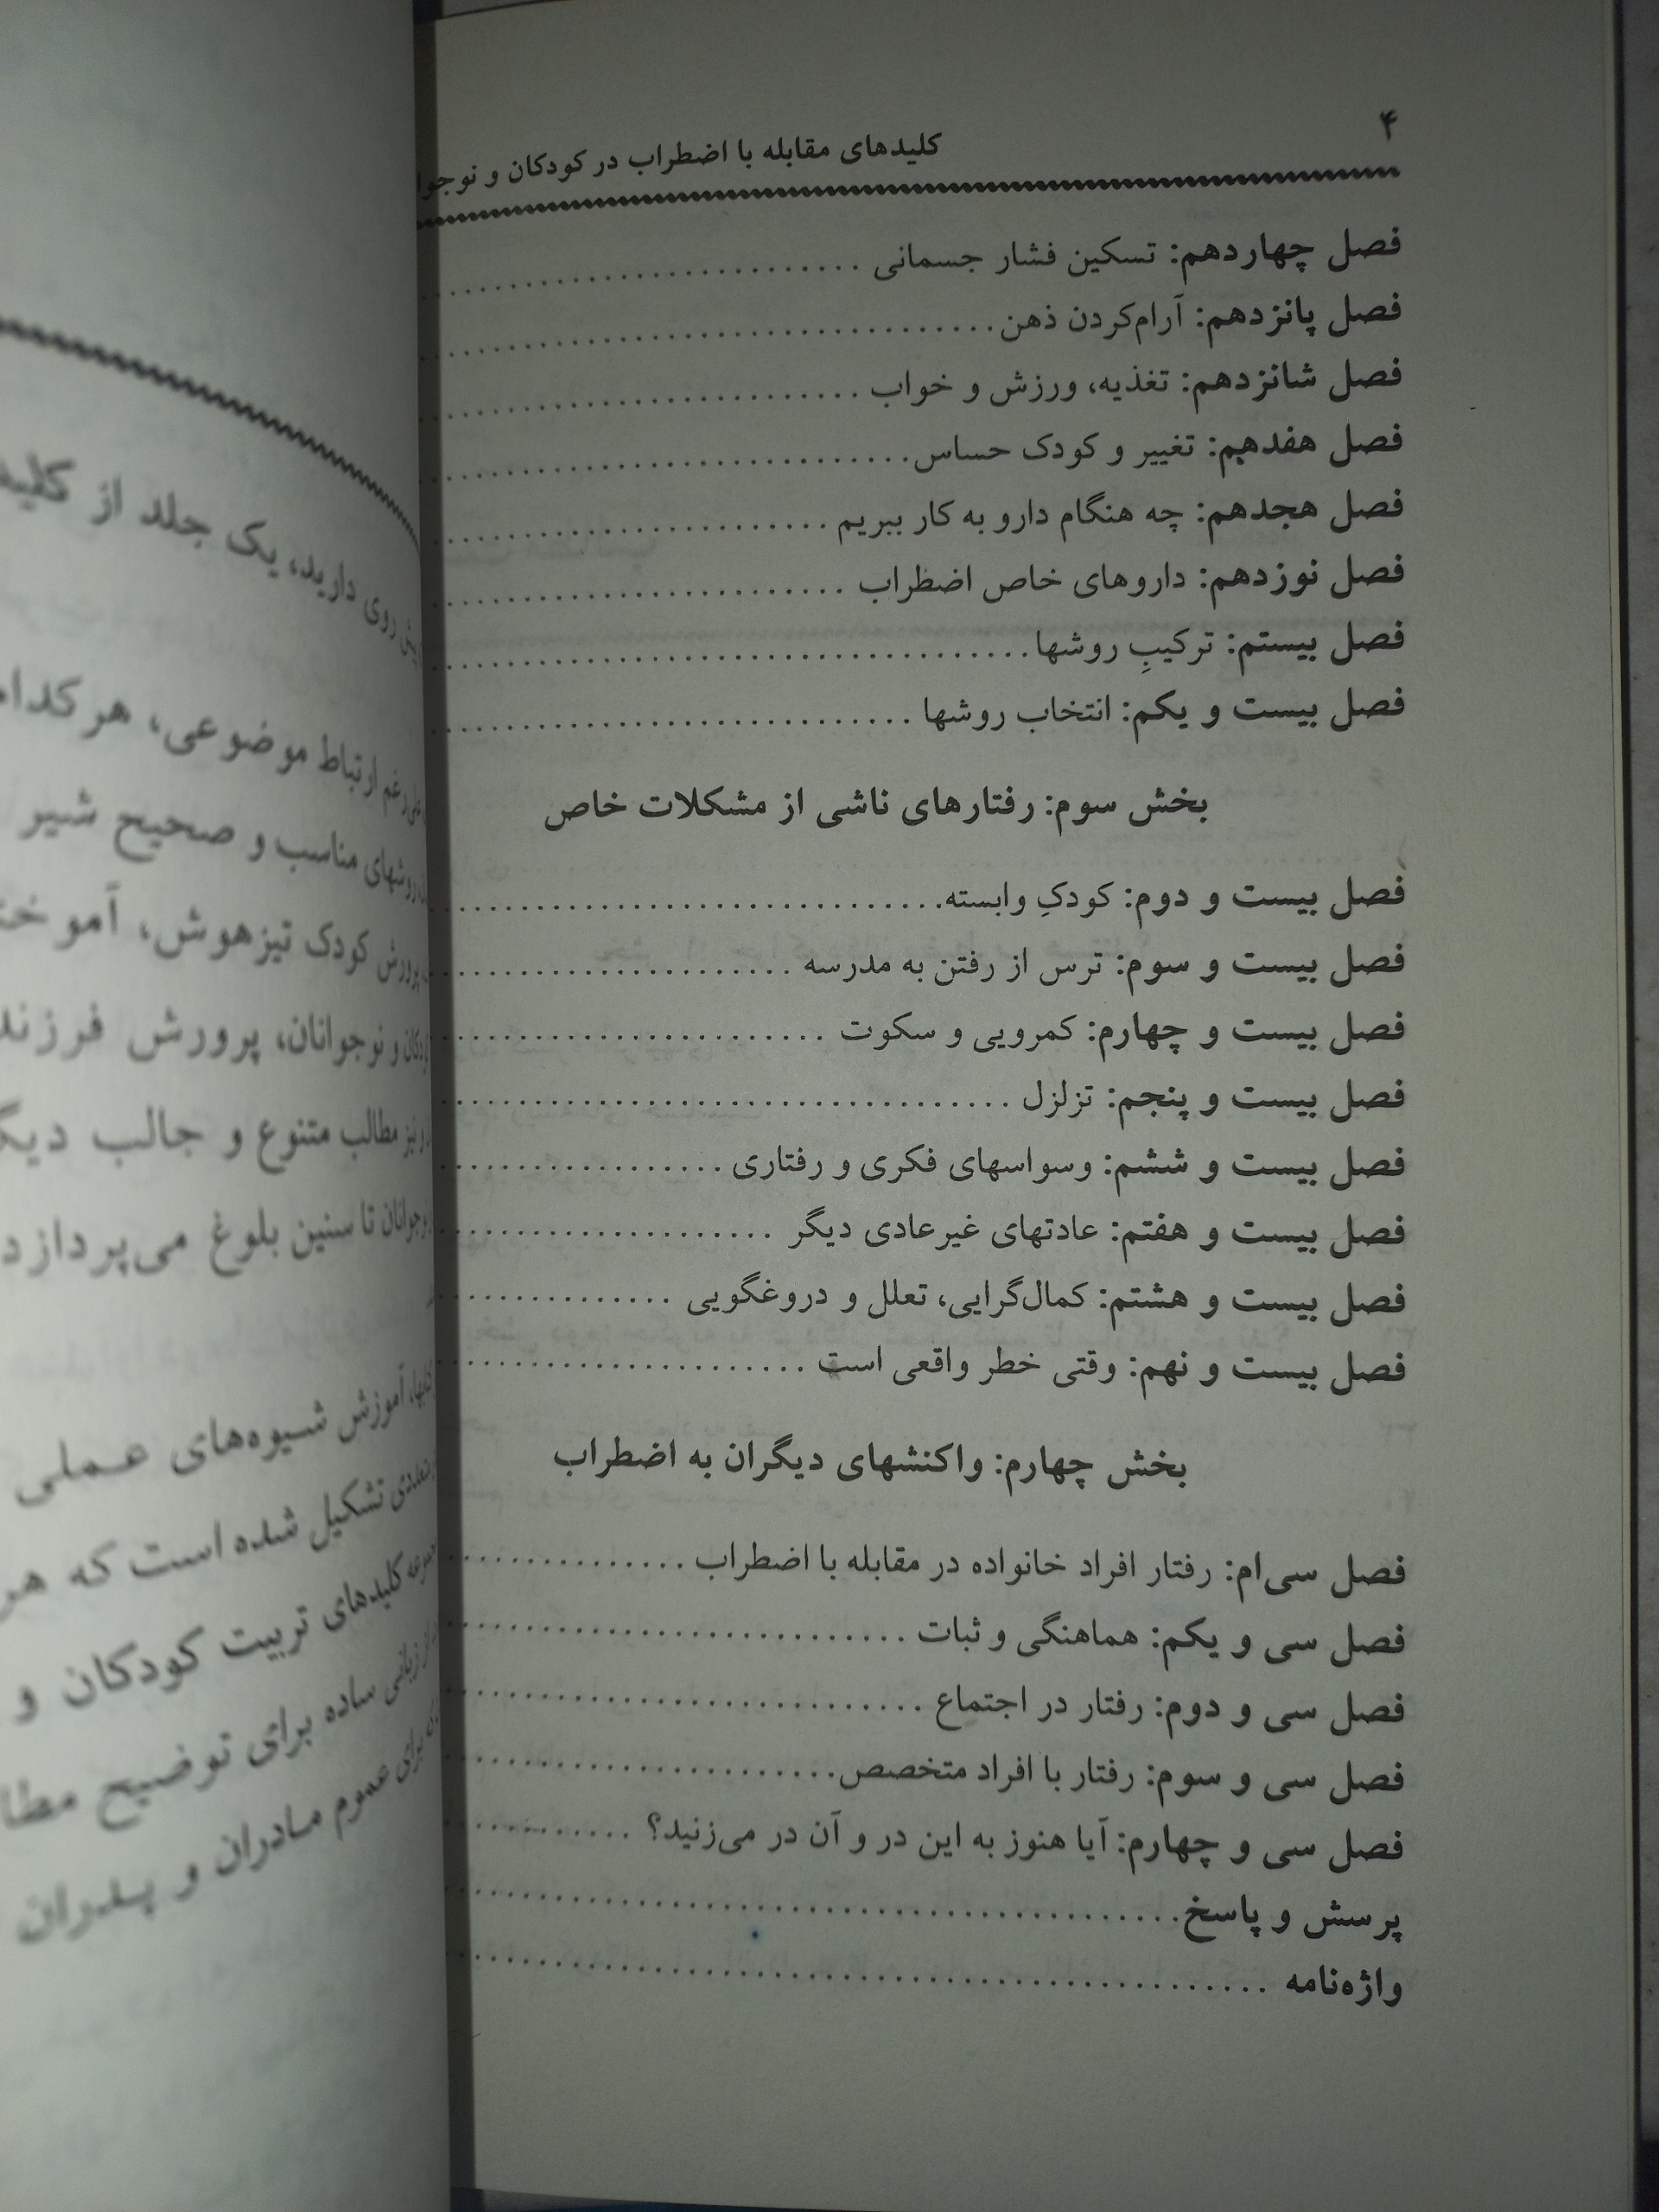 ۴
کلیدهای مقابله با اضطراب در کودکان و نوجوا
فصل چهاردهم: تسکین فشار جسمانی
فصل پانزدهم: آرام‌کردن ذهن
فصل شانزدهم: تغذیه، ورزش و خواب
فصل هفدهم: تغییر و کودک حساس
فصل هجدهم: چه هنگام دارو به کار ببریم
فصل نوزدهم: داروهای خاص اضطراب
فصل بیستم: ترکیبِ روشها
فصل بیست و یکم: انتخاب روشها
بخش سوم: رفتارهای ناشی از مشکلات خاص
فصل بیست و دوم: کودکِ وابسته
فصل بیست و سوم: ترس از رفتن به مدرسه
فصل بیست و چهارم: کمرویی و سکوت
فصل بیست و پنجم: تزلزل
فصل بیست و ششم: وسواسهای فکری و رفتاری
فصل بیست و هفتم: عادتهای غیرعادی دیگر
فصل بیست و هشتم: کمال‌گرایی، تعلل و دروغگویی
فصل بیست و نهم: وقتی خطر واقعی است
بخش چهارم: واکنشهای دیگران به اضطراب
فصل سی‌ام: رفتار افراد خانواده در مقابله با اضطراب
فصل سی و یکم: هماهنگی و ثبات
فصل سی و دوم: رفتار در اجتماع
فصل سی و سوم: رفتار با افراد متخصص
فصل سی و چهارم: آیا هنوز به این در و آن در می‌زنید؟
پرسش و پاسخ
واژه‌نامه
روی دارید، یک جلد از
ارتباط موضوعی،
مناسب و صحیح شیر
پرورش کودک تیزهوش،
و نوجوانان، پرورش
مطالب متنوع و جالب
تا سنین بلوغ می‌پردازد
آموزش شیوه‌های عملی
تشکیل شده است که
کلیدهای تربیت کودکان و
ساده برای توضیح
برای عموم مادران و پدران